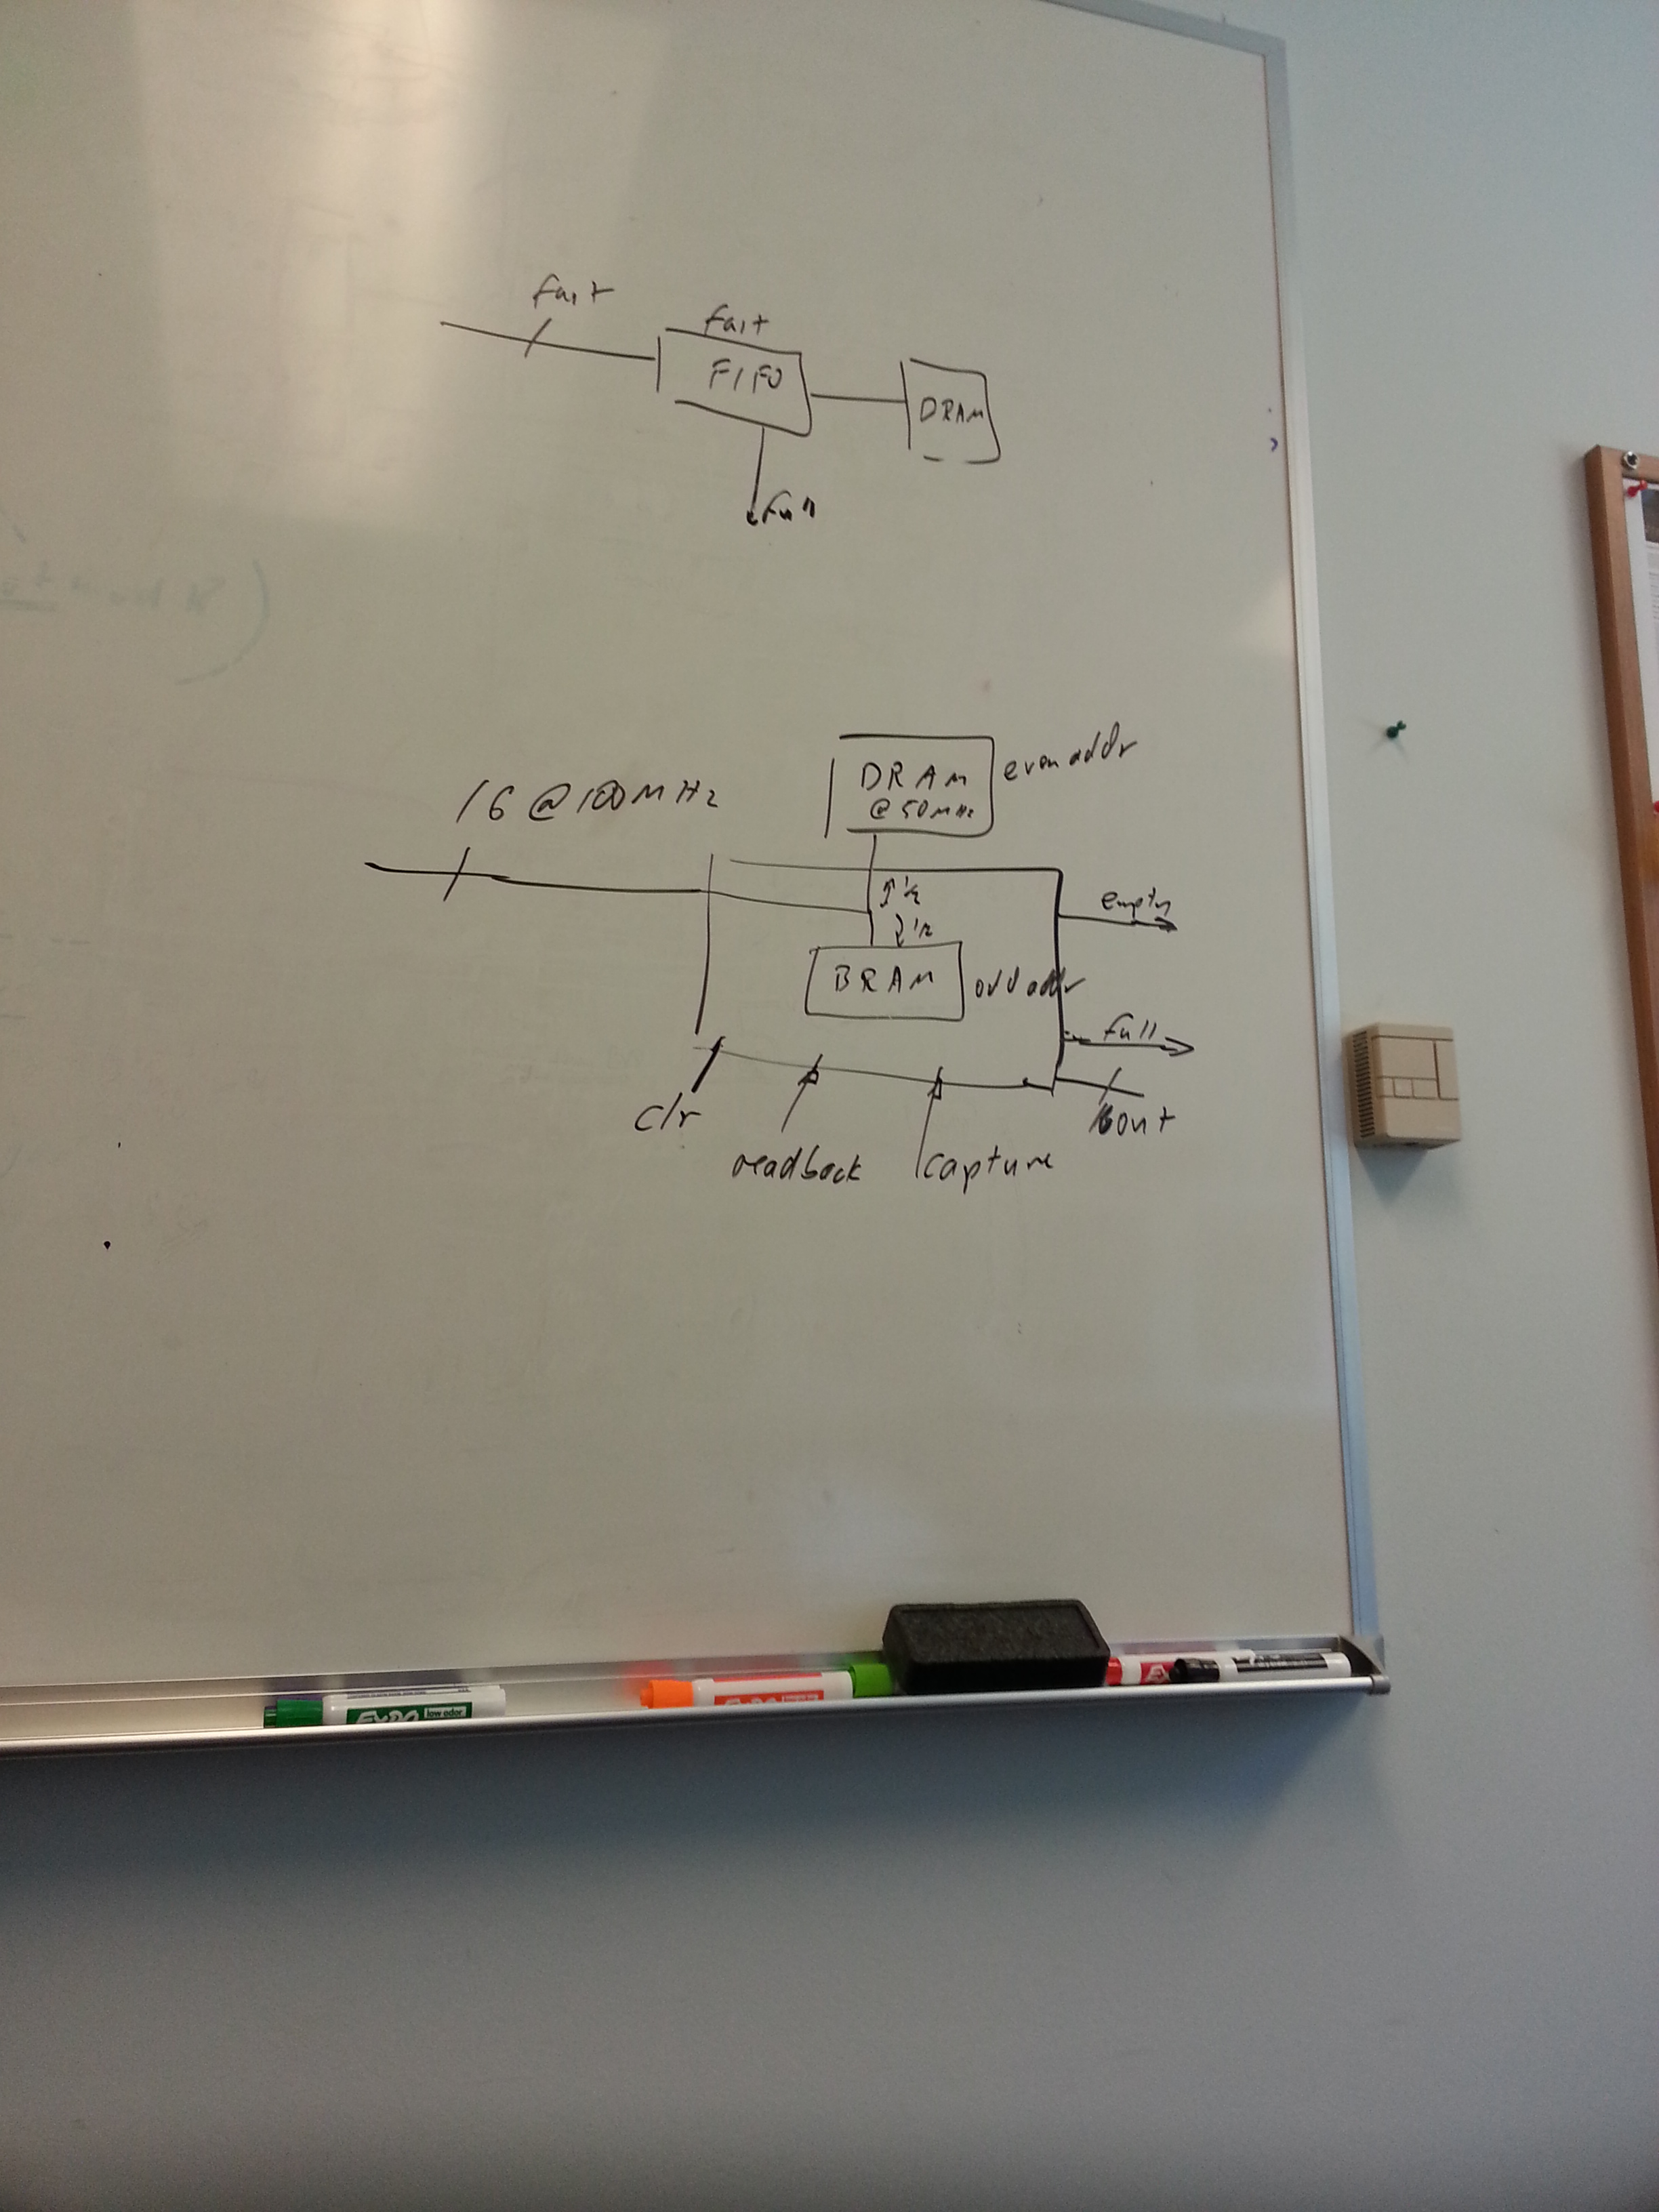 fast
fast
FIFO
DRAM
full
16 @ 100MHz
DRAM
@ 50MHz
even addr
↑ 1/2
↓ 1/2
empty
BRAM
odd addr
full
clr
readback
capture
16 out
EXPO
low odor
EXPO